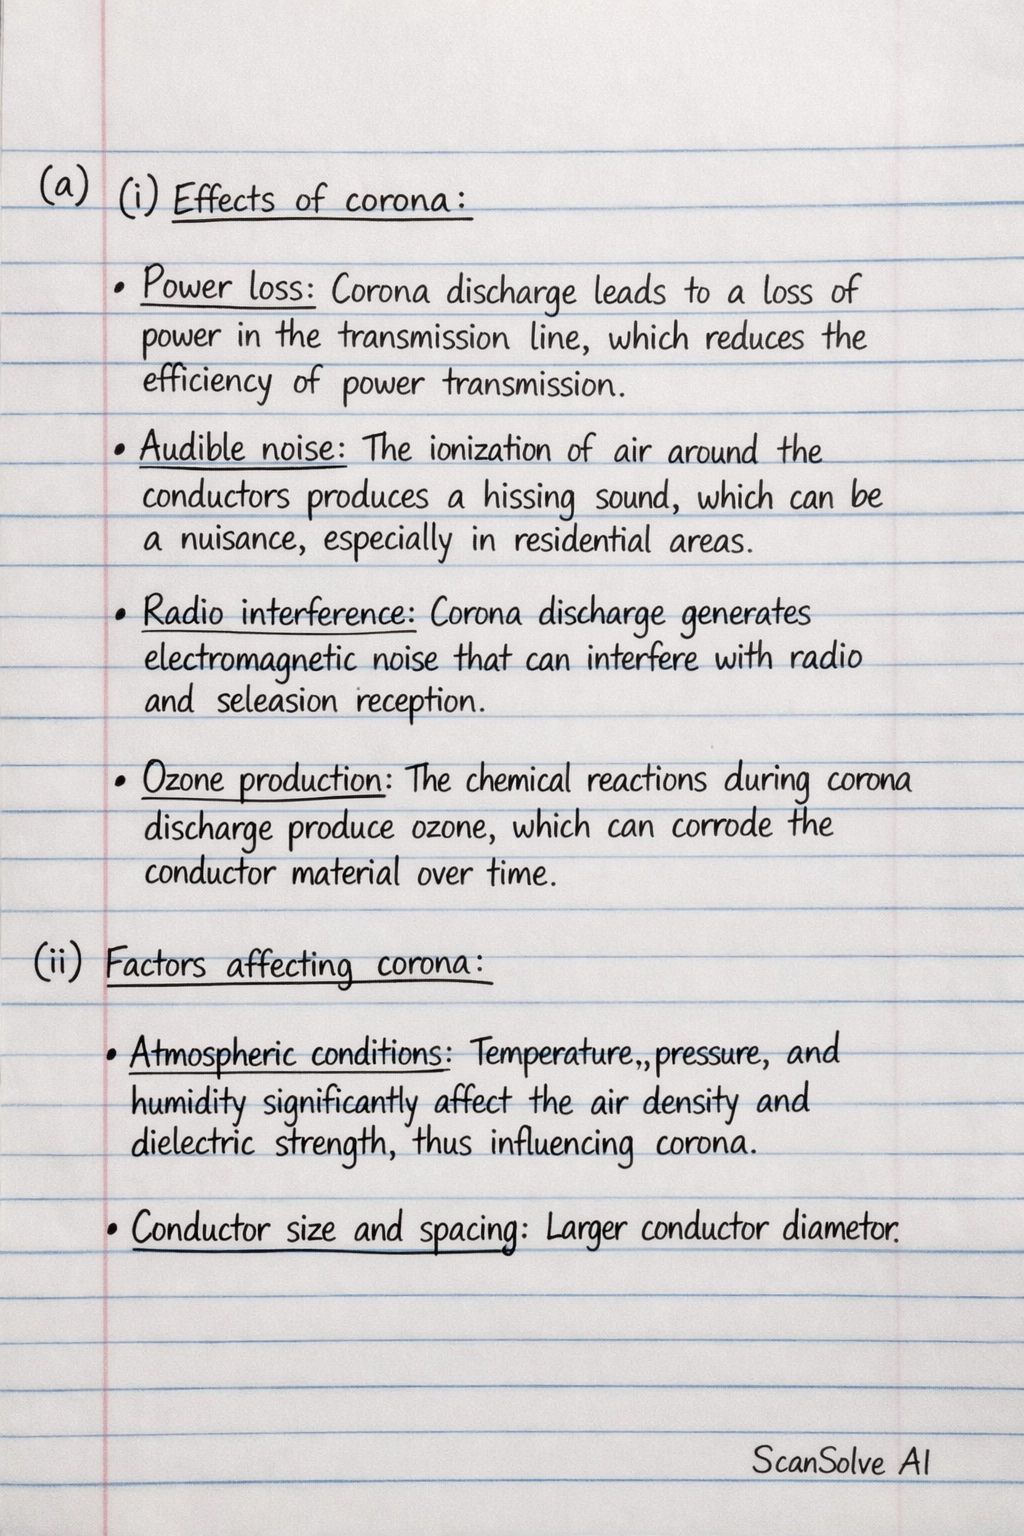 (a) (i) Effects of corona:
• Power loss: Corona discharge leads to a loss of
power in the transmission line, which reduces the
efficiency of power transmission.
• Audible noise: The ionization of air around the
conductors produces a hissing sound, which can be
a nuisance, especially in residential areas.
• Radio interference: Corona discharge generates
electromagnetic noise that can interfere with radio
and seleasion reception.
• Ozone production: The chemical reactions during corona
discharge produce ozone, which can corrode the
conductor material over time.
(ii) Factors affecting corona:
• Atmospheric conditions: Temperature,, pressure, and
humidity significantly affect the air density and
dielectric strength, thus influencing corona.
• Conductor size and spacing: Larger conductor diametor.
ScanSolve AI